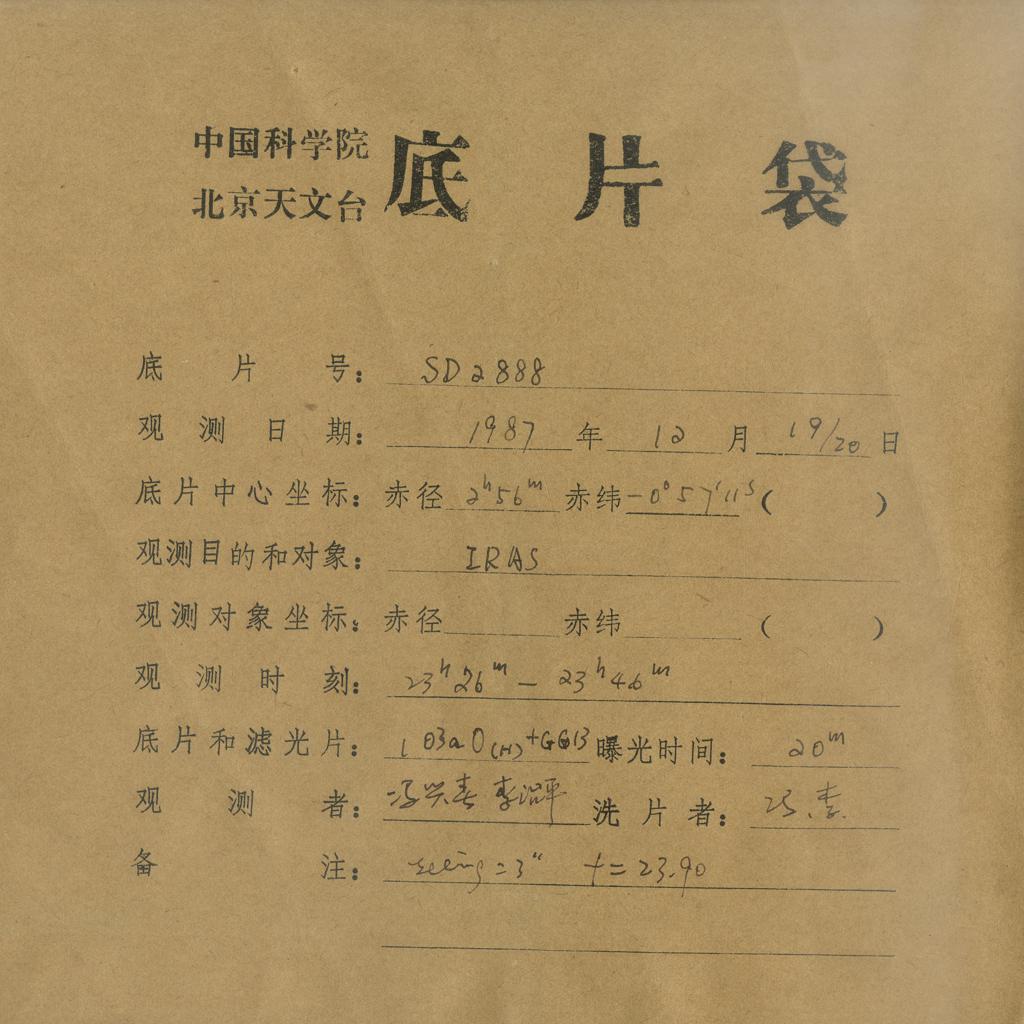 中国科学院
北京天文台
底片袋
底片号: SD2888
观测日期: 1987 年 12 月 19/20 日
底片中心坐标: 赤径 2ʰ56ᵐ 赤纬 -0°57′11ˢ ( )
观测目的和对象: IRAS
观测对象坐标: 赤径 赤纬 ( )
观测时刻: 23ʰ26ᵐ — 23ʰ46ᵐ
底片和滤光片: 103aO(H)+GG13 曝光时间: 20ᵐ
观测者: 冯兴春 李 平 洗片者: 冯.李.
备注: seeing=3″ t=23.90